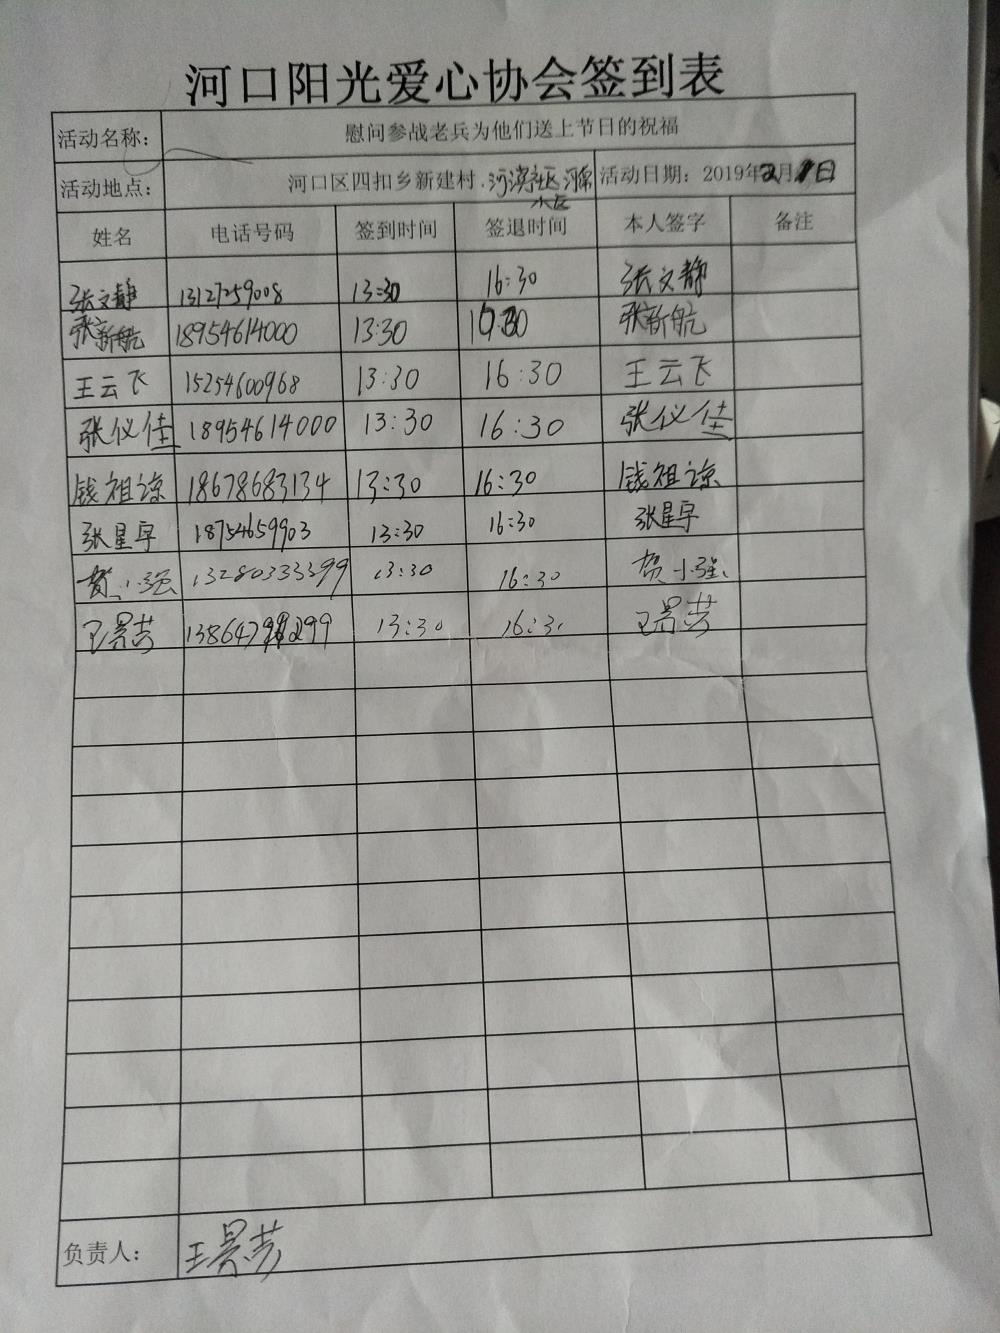 河口阳光爱心协会签到表
活动名称： 慰问参战老兵为他们送上节日的祝福
活动地点： 河口区四扣乡新建村.河滨社区 活动日期：2019年2月1日
姓名 电话号码 签到时间 签退时间 本人签字 备注
张文静 13127259008 13:30 16:30 张文静
张新航 18954614000 13:30 16:30 张新航
王云飞 15254600968 13:30 16:30 王云飞
张仪佳 18954614000 13:30 16:30 张仪佳
钱祖谅 18678683134 13:30 16:30 钱祖谅
张星宇 18754659903 13:30 16:30 张星宇
贺小强 13280333399 13:30 16:30 贺小强
王景芸 13:30 16:30 王景芸
负责人： 王景芸